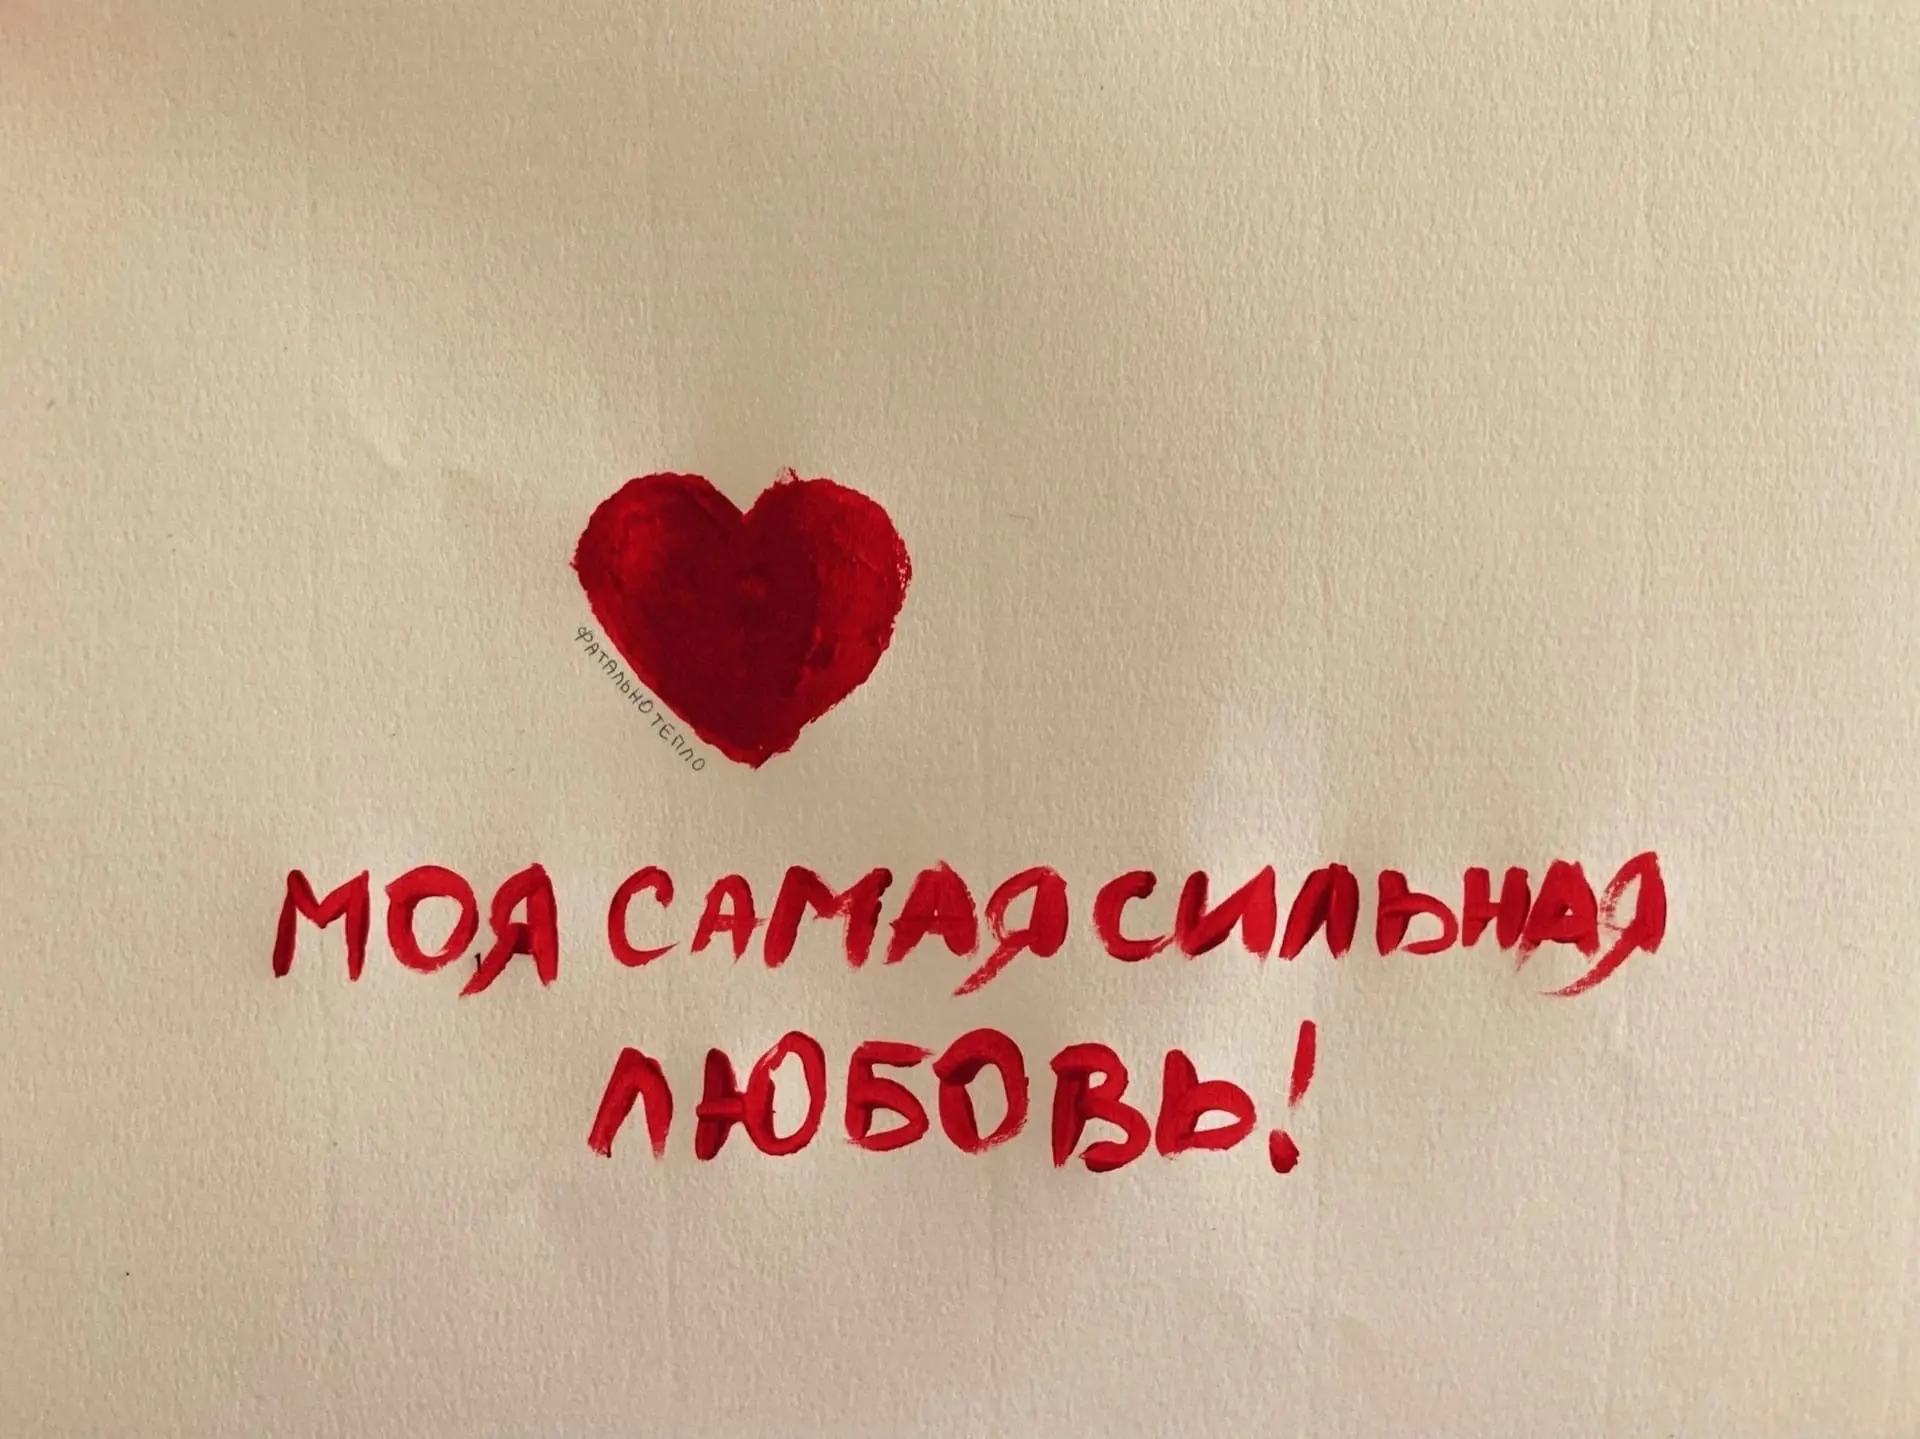 ФАТАЛЬНО ТЕПЛО
МОЯ САМАЯ СИЛЬНАЯ
ЛЮБОВЬ!